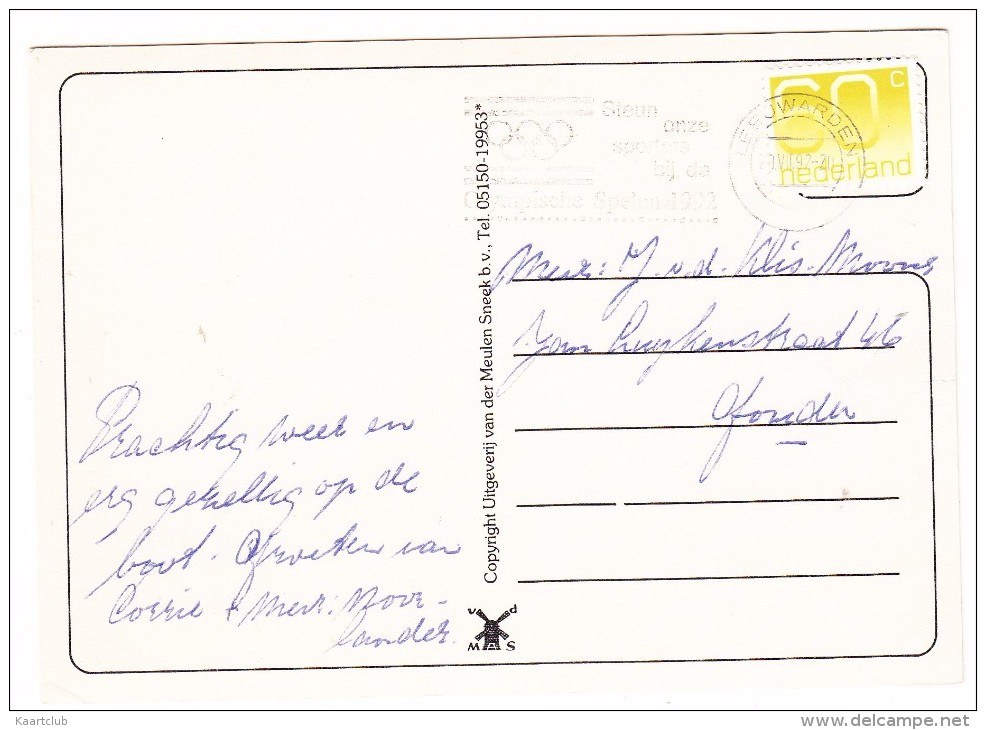 60 c
nederland
LEEUWARDEN
Steun
onze
sporters
bij de
Olympische Spelen 1992
Mevr: J. v.d. Klis-Moons
Jan Luykenstraat 46
Gouda
Prachtig weer en
erg gezellig op de
boot. Groeten van
Corrie + Mevr: Moor-
lander.
Copyright Uitgeverij van der Meulen Sneek b.v., Tel. 05150-19953*
v d
M S
Kaartclub
www.delcampe.net